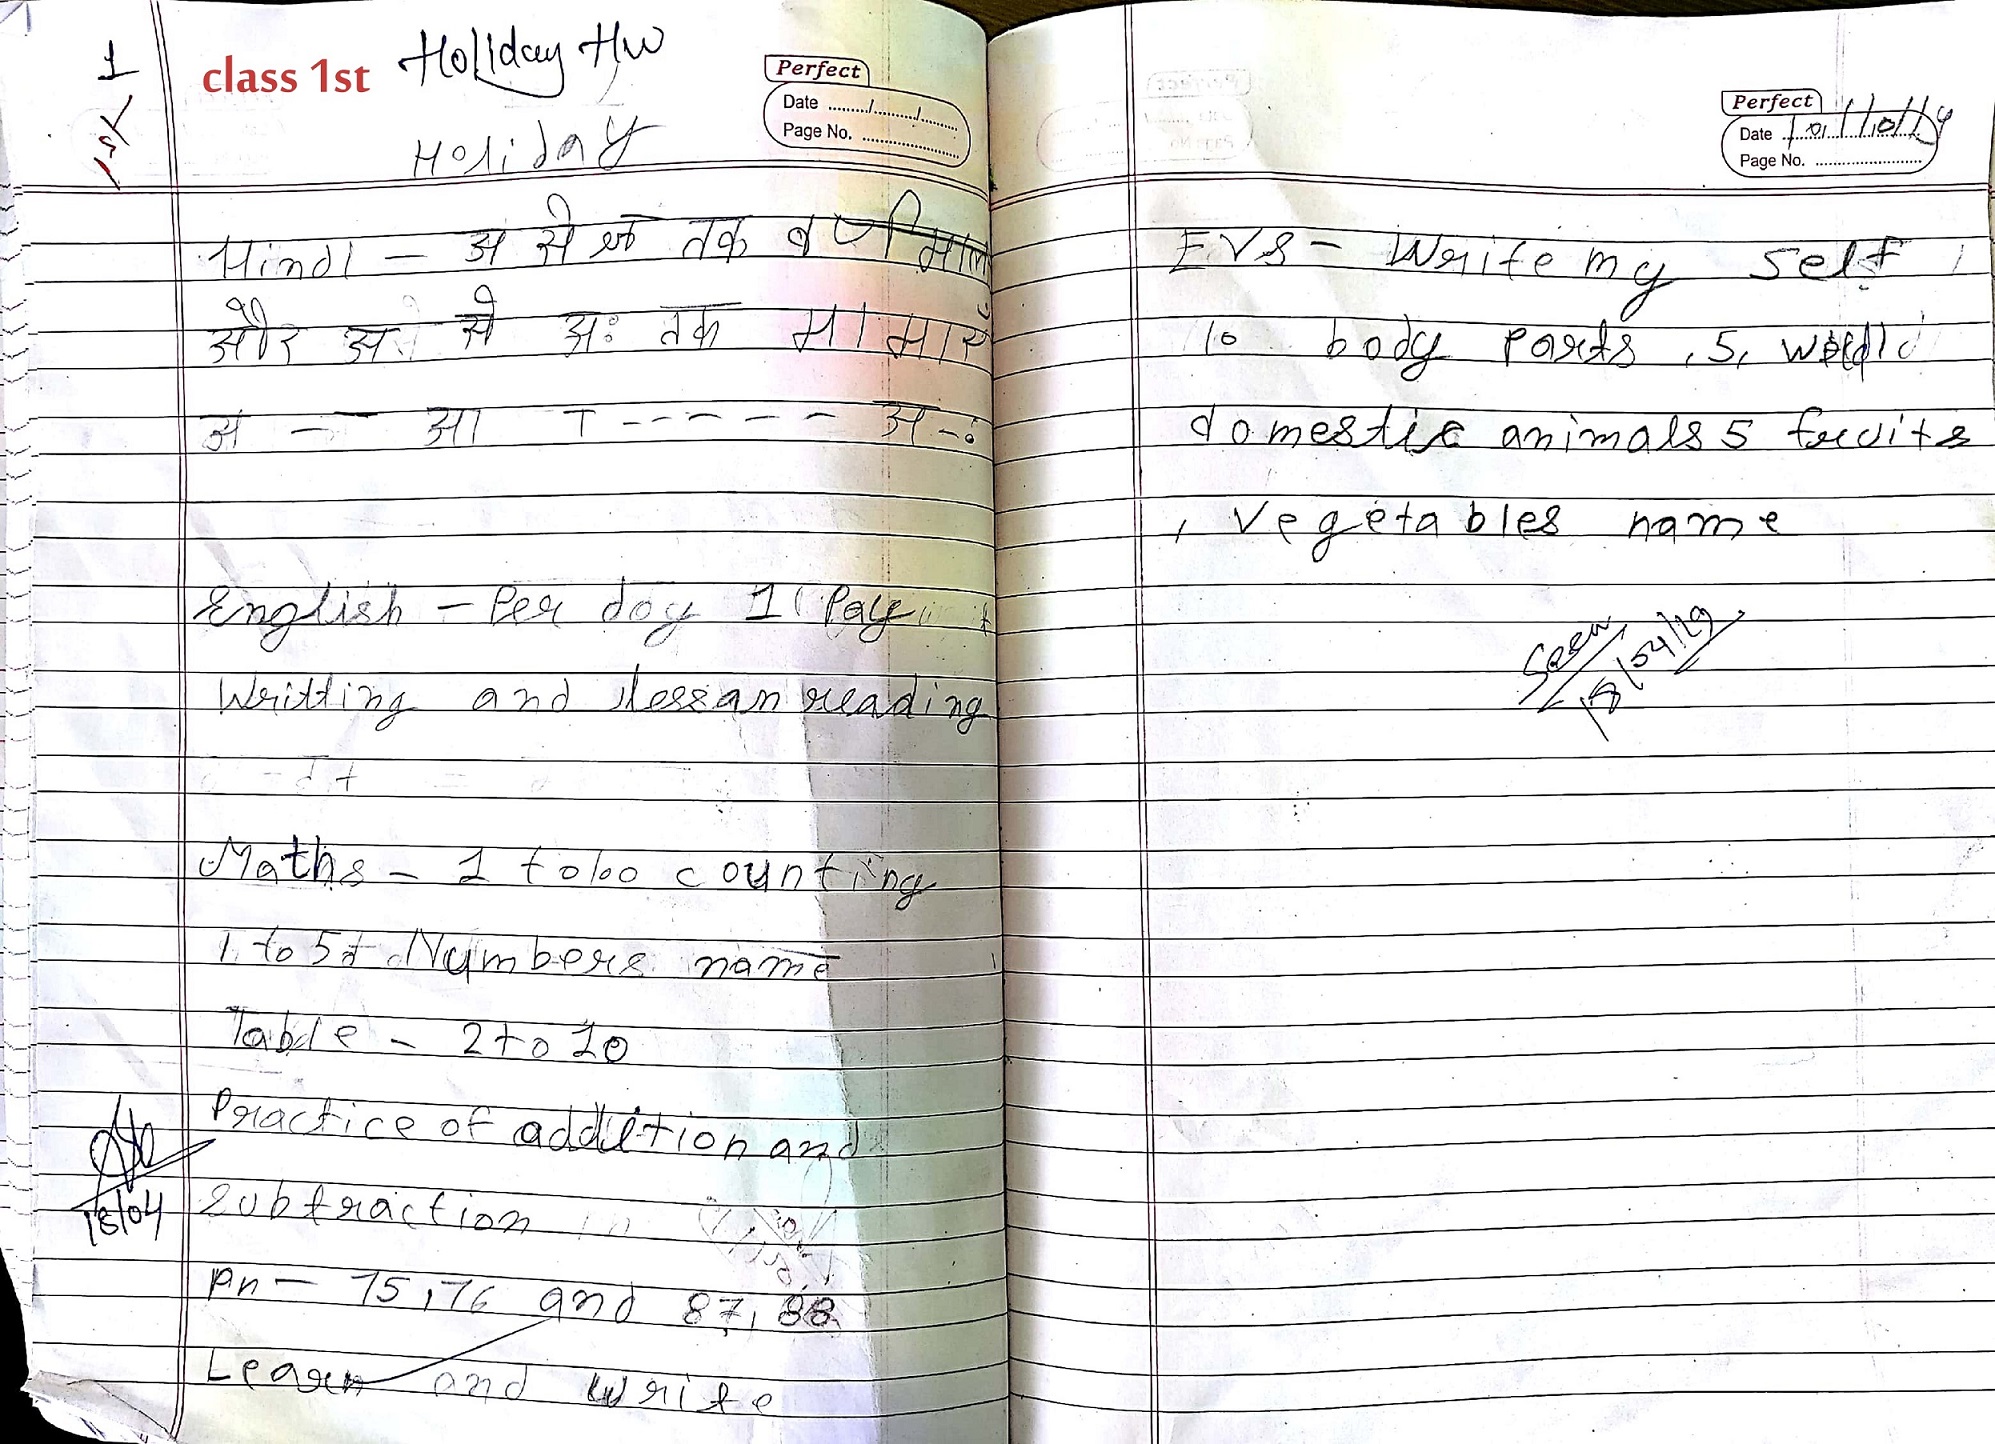 1
1st
class 1st Holiday Hw
Perfect
Date ......../........./.........
Page No. ........................
Holiday
Hindi - अ से ज्ञ तक वर्णमाला
और अ से अः तक मात्राएँ
अ - - आ ा - - - - - अ - ः
English - Per day 1 Page
Writting and lessan reading
Maths - 1 to 100 counting
1 to 50 Numbers name
Table - 2 to 10
Practice of addition and
Subtraction in
Pn - 75, 76 and 87, 88
18/04
Learn and write
Perfect
Date
Page No. ........................
EVS - Write my self
10 body parts, 5, wild
domestic animals 5 fruits
, vegetables name
Seen
18/04/19